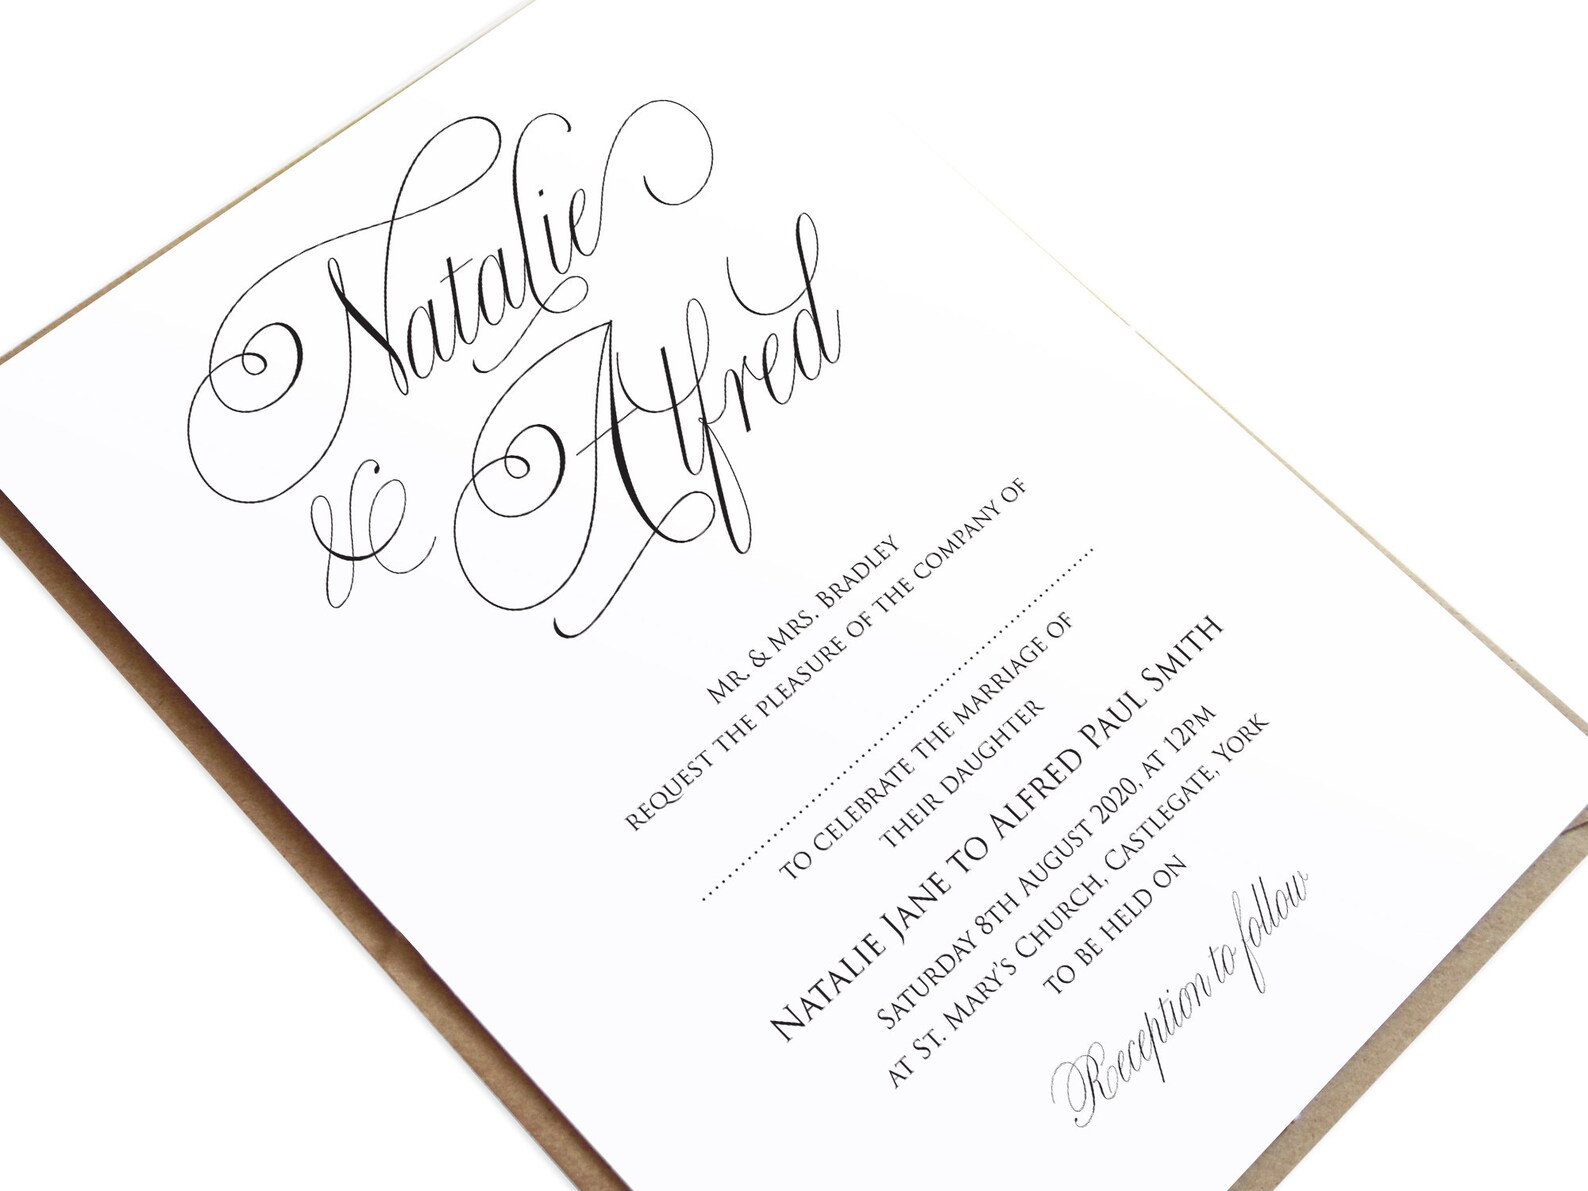 Natalie
& Alfred
Mr. & Mrs. Bradley
request the pleasure of the company of
to celebrate the marriage of
their daughter
Natalie Jane to Alfred Paul Smith
Saturday 8th August 2020, at 12pm
at St. Mary's Church, Castlegate, York
to be held on
Reception to follow